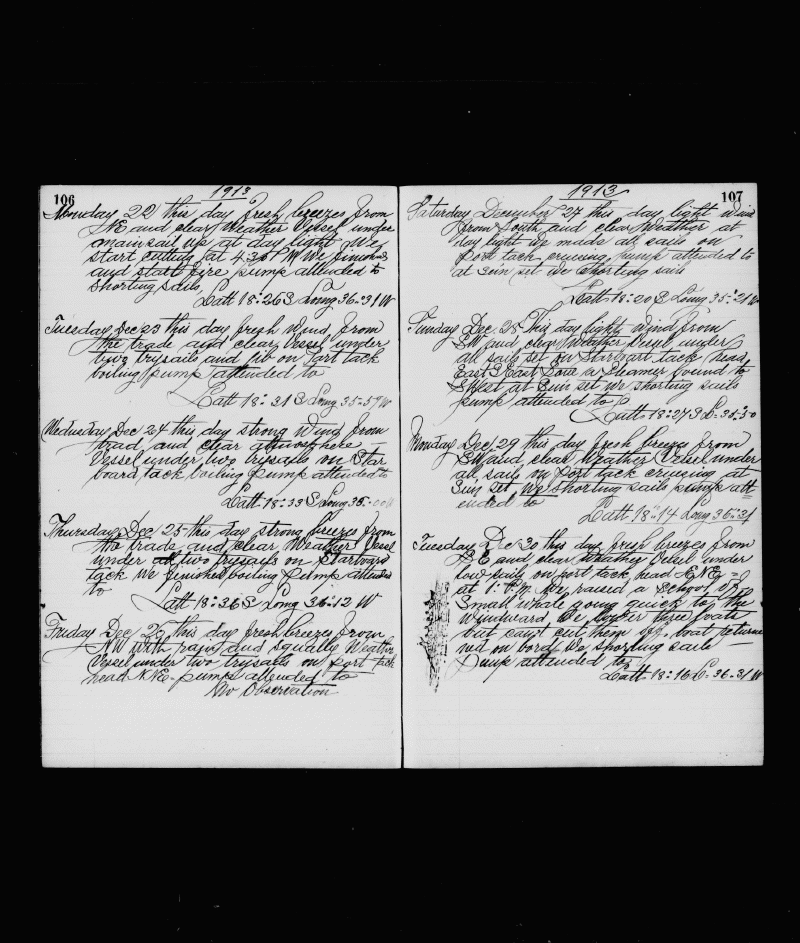 106
1913
Monday 22 this day fresh breezes from
NE and clear Weather Vessel under
mainsail up at day light We
start cutting at 4.30 P M We finished
and statt fire pump attended to
shorting sails
Latt 18:26 S Long 36=31 W
Tuesday Dec 23 this day fresh Wind from
the trade and clear Vessel under
two trysails and jib on Port tack
boiling pump attended to
Latt 18=31 S Long 35=57 W
Wednesday Dec 24 this day strong Wind from
traid and clear
Vessel under two trysails on Star
board tack boiling Pump attended to
Latt 18=33 S Long 35=00
Thursday Dec 25 this day strong breezes from
the trade and clear Weather Vessel
under two trysails on Starboard
tack We finished boiling Pump attended
to
Latt 18=36 S Long 36=12 W
Friday Dec 26 this day fresh breezes from
NW with rain and squally Weather
Vessel under two trysails on Port tack
head NNE pump attended to
No Observation
1913
107
Saturday December 27 this day light Wind
from South and clear Weather at
day light We made all sails on
Port tack cruising pump attended to
at Sun set we shorting sails
Latt 18=20 S Long 35=21 W
Sunday Dec 28 This day light Wind from
SW and clear Weather Vessel under
all sails set on Starboart tack head
East S East a Steamer bound to
SWest at Sun set We shorting sails
pump attended to
Latt 18=27 S L=35=30
Monday Dec 29 this day fresh breeze from
SW and clear Weather Vessel under
all sails on Port tack cruising at
Sun set We shorting sails pump att=
ended to
Latt 18=14 Long 36=31
Tuesday Dec 30 this day fresh breezes from
SE and clear Weather Vessel under
low sails on port tack head ENE =
at 1: P.M. We raised a School of
Small whale going quick to the
Windward We lower three boats
but can't cut them off. boat retur
ned on bord We shorting sails
Pump attended to
Latt 18:16 L=36=31 W